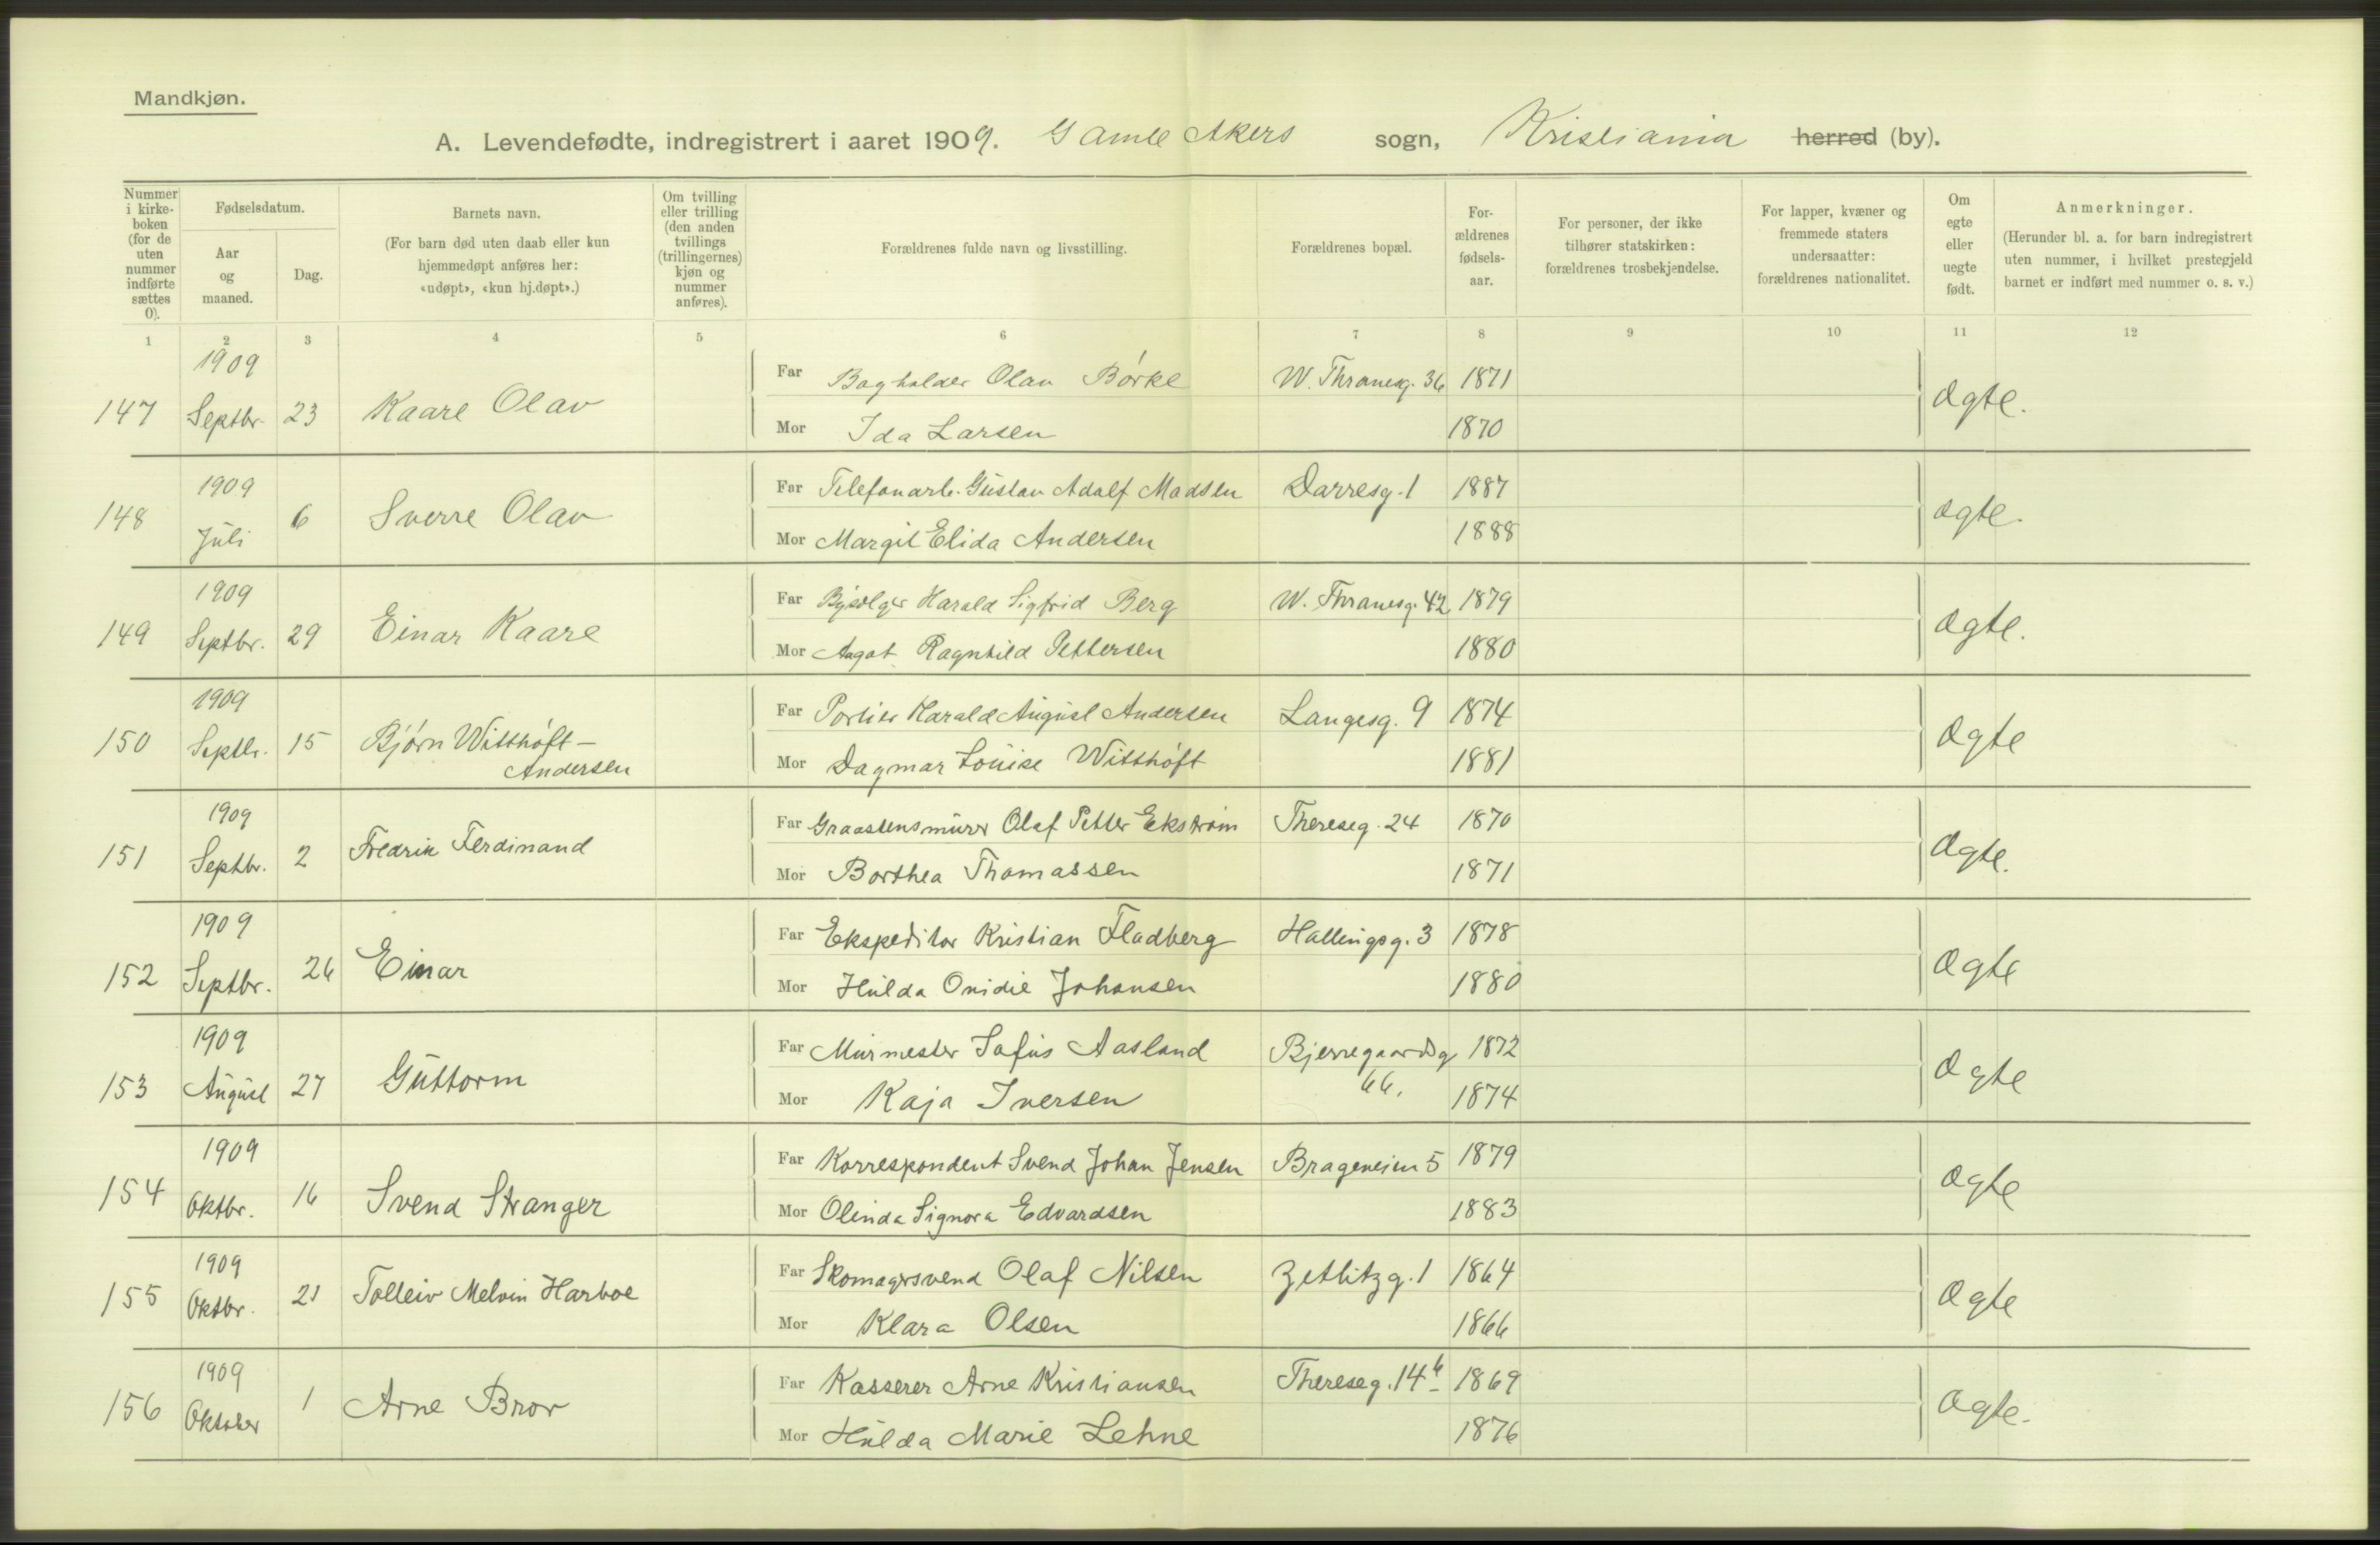 Mandkjøn.
A. Levendefødte, indregistrert i aaret 1909. Gamle Akers sogn, Kristiania herred (by).
Nummer i kirke-boken (for de uten nummer indførte sættes 0).
Fødselsdatum.
Aar og maaned.
Dag.
Barnets navn.
(For barn død uten daab eller kun hjemmedøpt anføres her: «udøpt», «kun hj.døpt».)
Om tvilling eller trilling (den anden tvillings (trillingernes) kjøn og nummer anføres).
Forældrenes fulde navn og livsstilling.
Forældrenes bopæl.
For-ældrenes fødsels-aar.
For personer, der ikke tilhører statskirken: forældrenes trosbekjendelse.
For lapper, kvæner og fremmede staters undersaatter: forældrenes nationalitet.
Om egte eller uegte født.
Anmerkninger.
(Herunder bl. a. for barn indregistrert uten nummer, i hvilket prestegjeld barnet er indført med nummer o. s. v.)
1 2 3 4 5 6 7 8 9 10 11 12
147 1909 Septbr. 23 Kaare Olav Far Bogholder Olav Børke W. Thranesg. 36 1871 ægte.
Mor Ida Larsen 1870
148 1909 Juli 6 Sverre Olav Far Telefonarb. Gustav Adolf Madsen Darresg. 1 1887 ægte.
Mor Margit Elida Andersen 1888
149 1909 Septbr. 29 Einar Kaare Far Harald Sigfrid Berg W. Thranesg. 42 1879 ægte.
Mor Aagot Ragnhild Pettersen 1880
150 1909 Septbr. 15 Bjørn Witthøft-Andersen Far Portier Harald August Andersen Langesg. 9 1874 ægte
Mor Dagmar Louise Witthøft 1881
151 1909 Septbr. 2 Fredrik Ferdinand Far Graastensmurer Olaf Petter Ekstrøm Thereseg. 24 1870 ægte.
Mor Borthea Thomassen 1871
152 1909 Septbr. 26 Einar Far Ekspeditør Kristian Fladberg Hallingsg. 3 1878 ægte
Mor Hulda Ovidie Johansen 1880
153 1909 August 27 Guttorm Far Murmester Sofus Aasland Bjerregaardsg 66. 1872 ægte
Mor Kaja Iversen 1874
154 1909 Oktbr. 16 Svend Stranger Far Korrespondent Svend Johan Jensen 5 1879 ægte
Mor Olinda Signora Edvardsen 1883
155 1909 Oktbr. 21 Tolleiv Melvin Harboe Far Skomagersvend Olaf Nilsen Zetlitzg. 1 1864 ægte
Mor Klara Olsen 1866
156 1909 Oktober 1 Arne Bror Far Kasserer Arne Kristiansen Thereseg. 14b 1869 ægte.
Mor Hulda Marie Lehne 1876